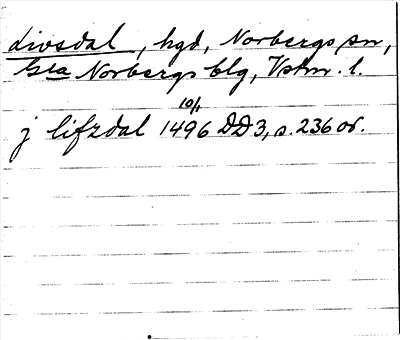 livsdal, hgd, Norbergs sn,
Gla Norbergs blg, Vstm. l.
j lifzdal 1496 10/1 DD3, s. 236 or.